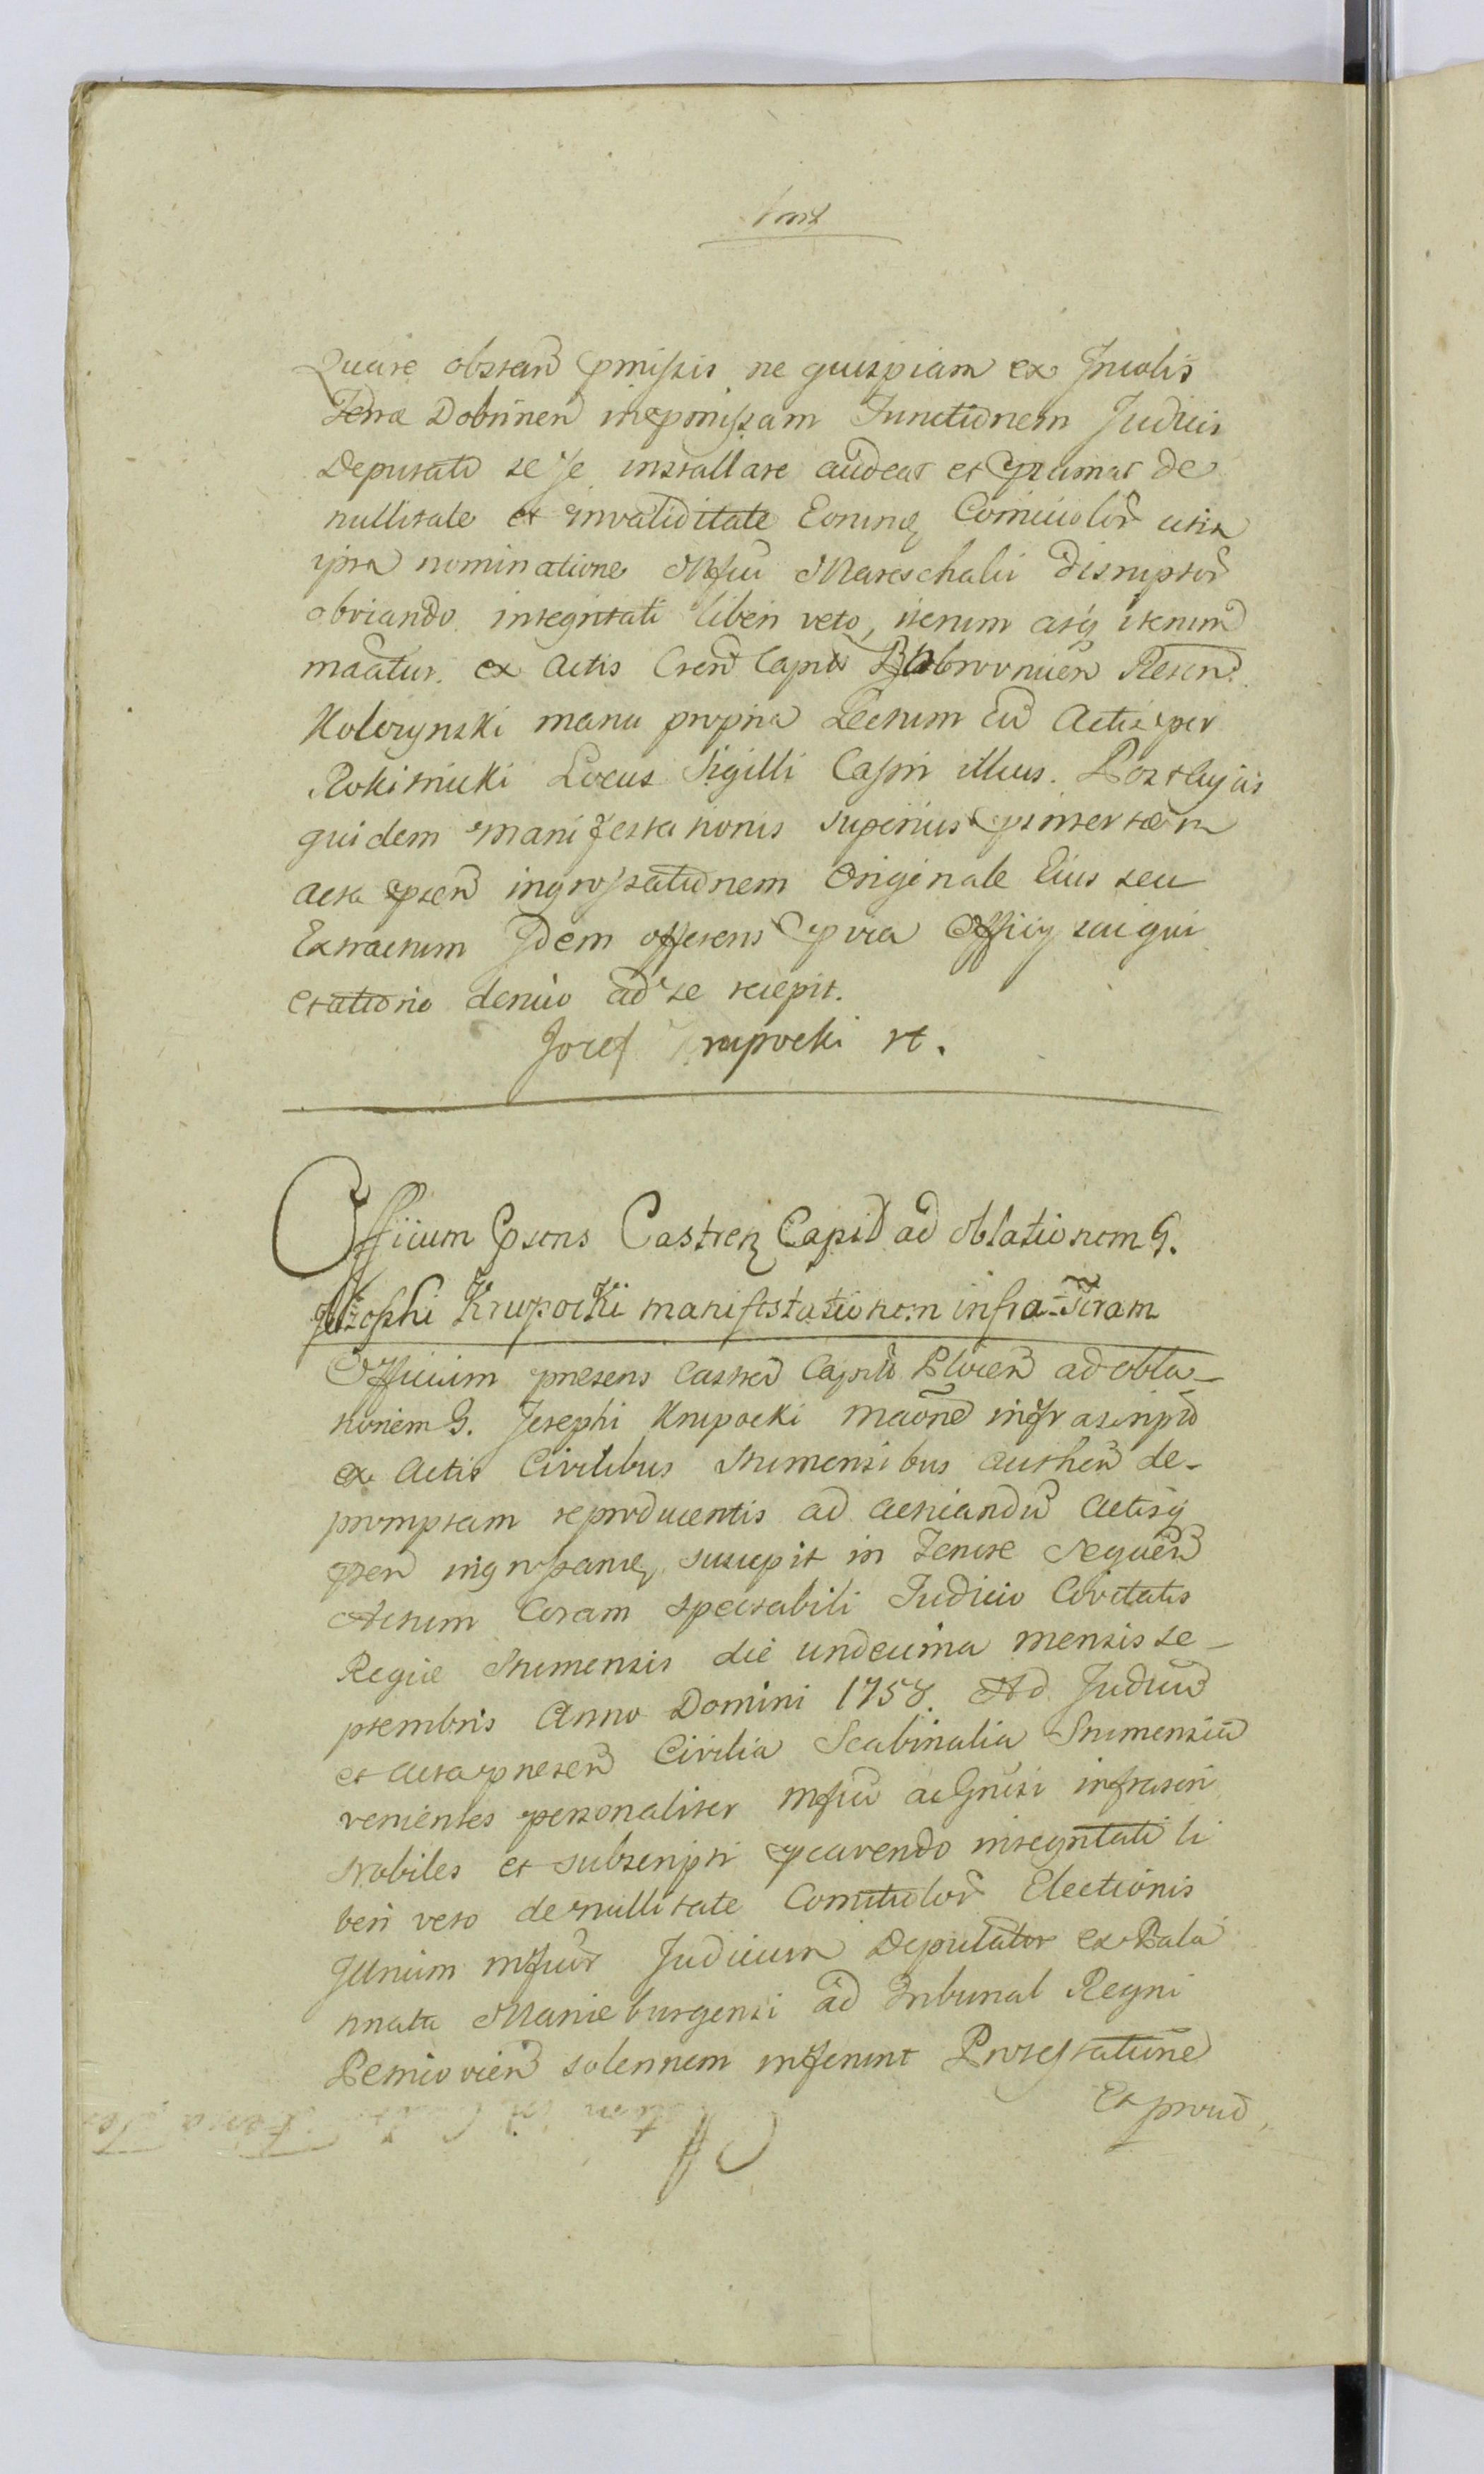 Quare obstan pmissis ne quispiam ex Incolis
Terræ Dobrinen in pmissam Functionem Judicis
Deputati sese installare audeat et psumat de
nullitate et invaliditate Eorumq Comitiolor citra
ipsa nominatione Mfici Mareschalii disruptor
obviando integritati liberi veto, iterum atq iterum
maatur. ex Actis Cren Capit Bobrovnicen Rescrip
manu propria Lectum cu Actis per
Rokitnicki Locus Sigilli Capit illius. Post cujus
quidem manifestationis superius insertæ in
acta psen ingrossationem Originale Eius seu
Extractum Idem offerens pria Officiu sui qui
etationo denuo ad se recepit.
Jozef Krupocki rt.
Officium Psens Castren Capit ad oblationem G.
Josephi Krupocki manifestationem infra-Scram
Officium presens Castren Capit Plocen ad obla-
tionem G. Josephi Krupocki maone infrascript
ex Actis Civilibus Stumensibus authen de-
promptam reproducentis ad acticandu Actisq
psen ingrossanq suscepit in Tenore Sequen
Actum Coram spectabili Judicio Civitatis
Regiæ Stumensis die undecima mensis Se-
ptembris Anno Domini 1758. Ad Judiciu
et acta presen Civilia Scabinalia Stumensia
venientes personaliter Mfici ac Gnrsi infrascri
Nobiles et subscripti pcavendo integritati li
beri veto de nullitate Comitiolor Electionis
Mficor Judicum Deputator ex Pala
tinatu Marieburgensi ad Tribunal Regni
solennem inferunt Protestatione
Et prout,